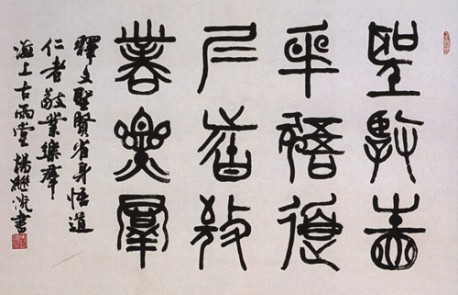 聖賢省
身悟道
仁者敬
業樂羣
釋文聖賢省身悟道
仁者敬業樂群
海上古雨堂楊書